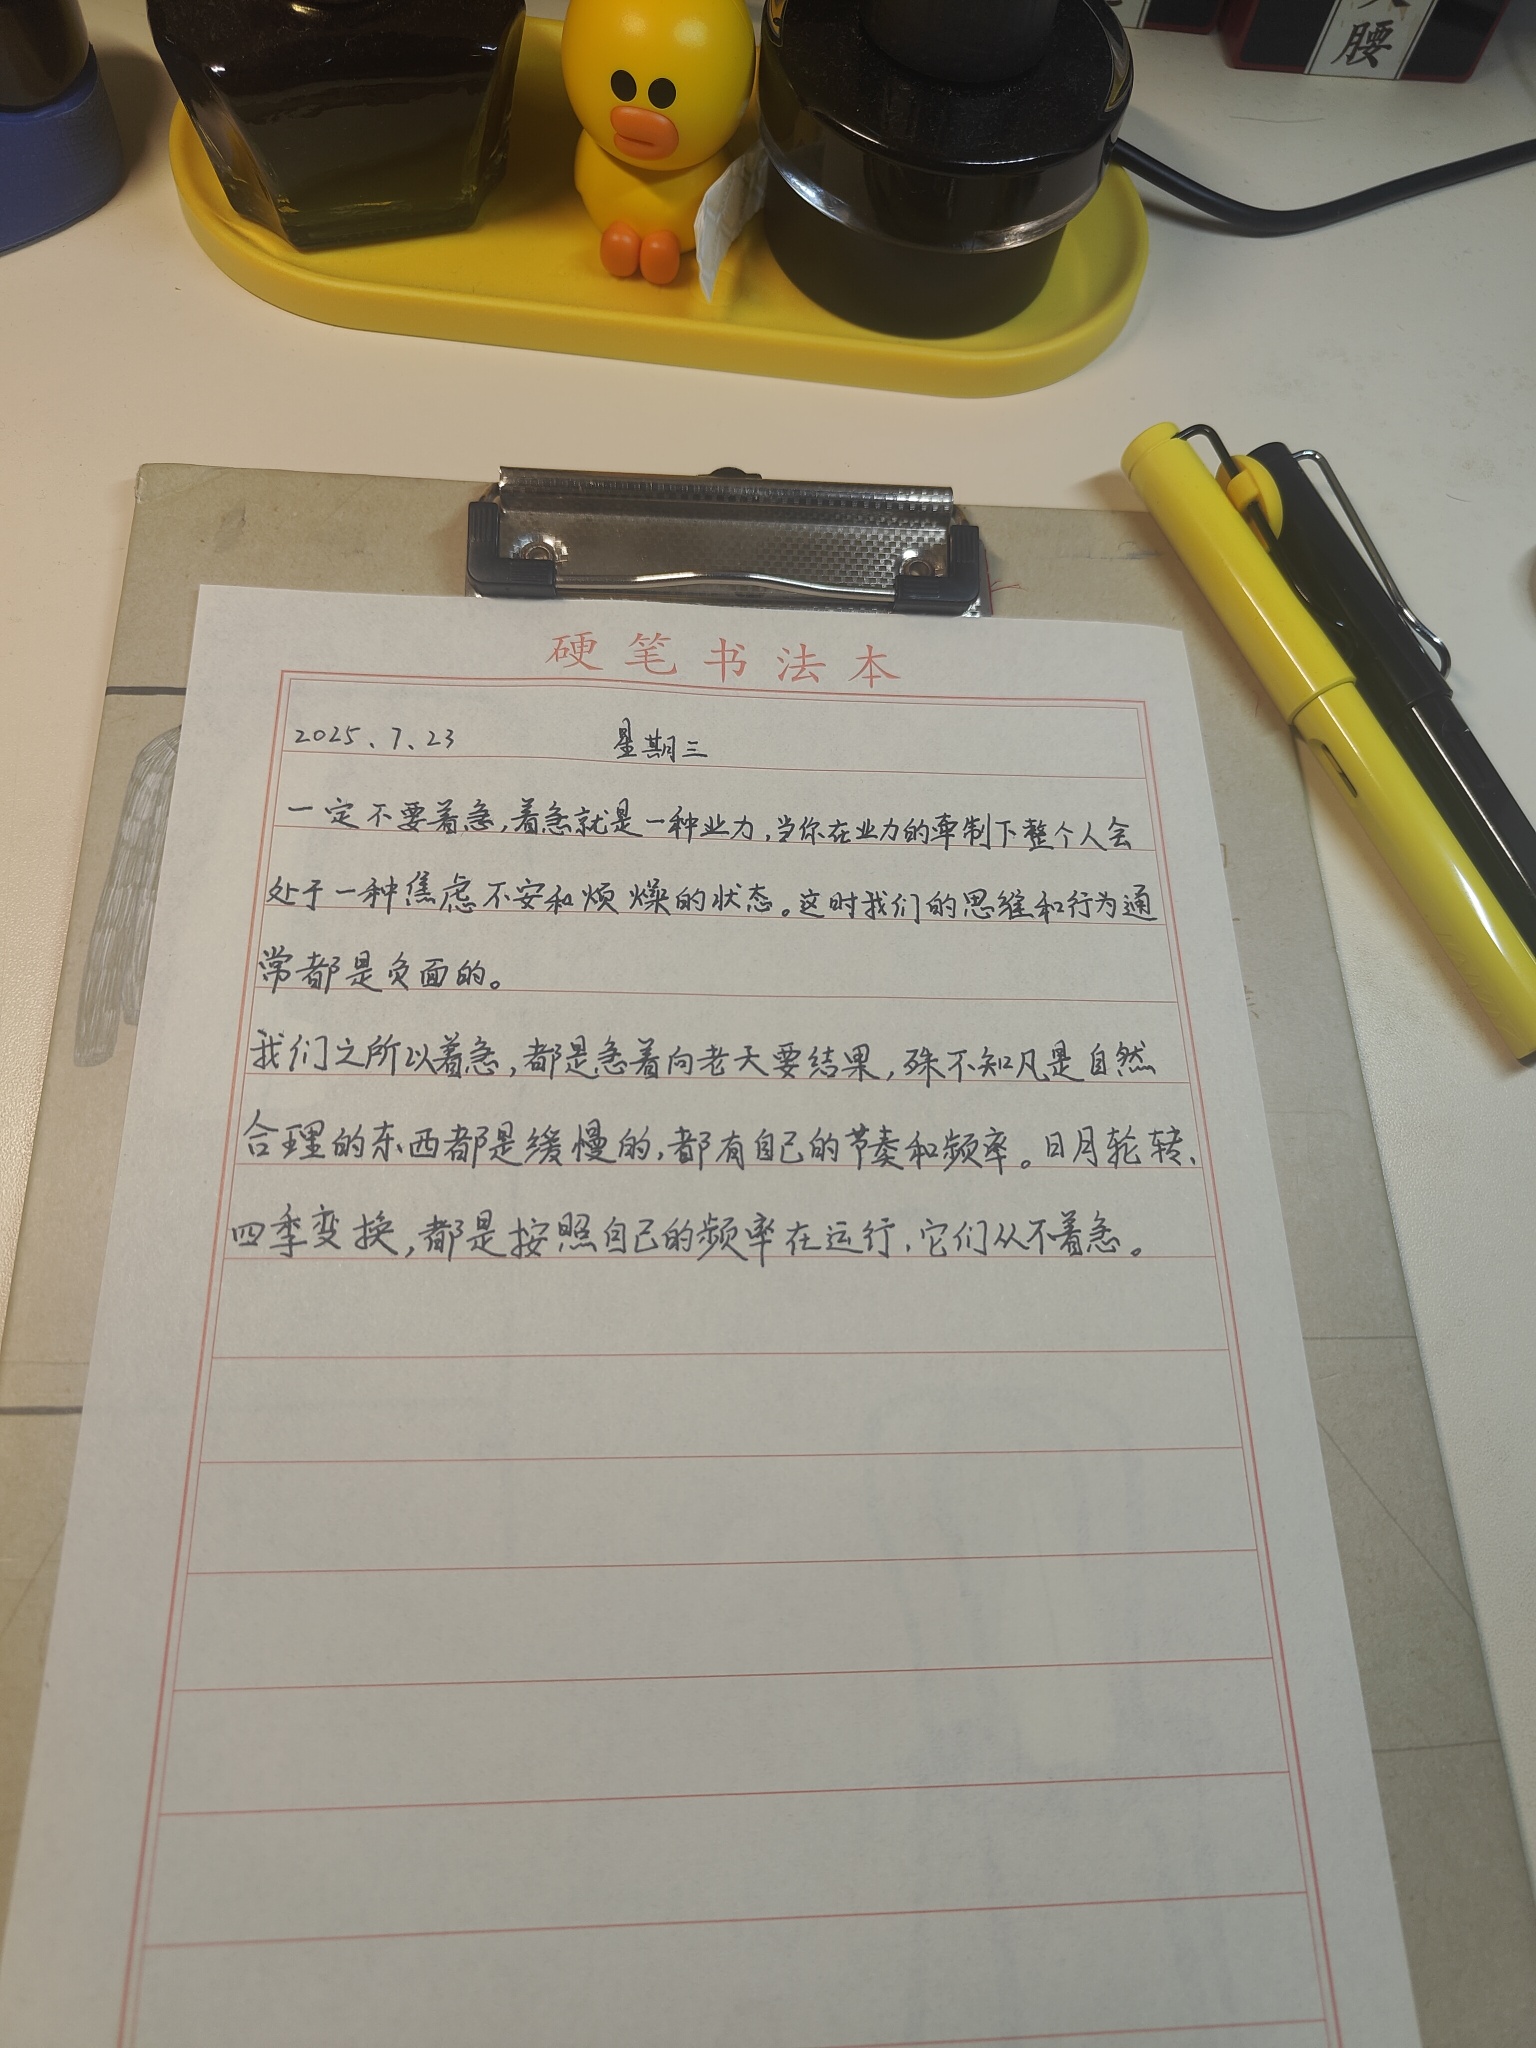 腰
硬笔书法本
2025、7、23 星期三
一定不要着急,着急就是一种业力,当你在业力的牵制下整个人会
处于一种焦虑不安和烦燥的状态。这时我们的思维和行为通
常都是负面的。
我们之所以着急,都是急着向老天要结果,殊不知凡是自然
合理的东西都是缓慢的,都有自己的节奏和频率。日月轮转、
四季变换,都是按照自己的频率在运行,它们从不着急。